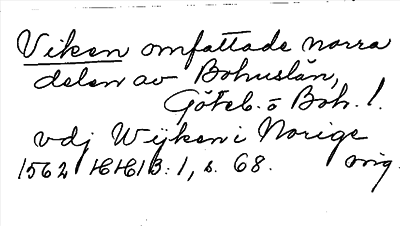 Viken omfattade norra
delen av Bohuslän,
Göteb. o Boh. l.
vdj Wijken i Norige
1562 HH1B: 1, s. 68. orig.